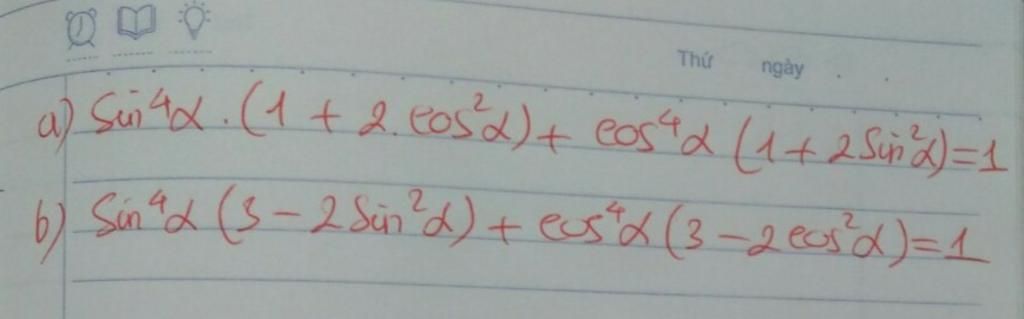 Thứ ngày . .
a) Sin⁴α . (1 + 2. cos²α) + cos⁴α (1 + 2 Sin²α) = 1
b) Sin⁴α (3 - 2 Sin²α) + cos⁴α (3 - 2 cos²α) = 1